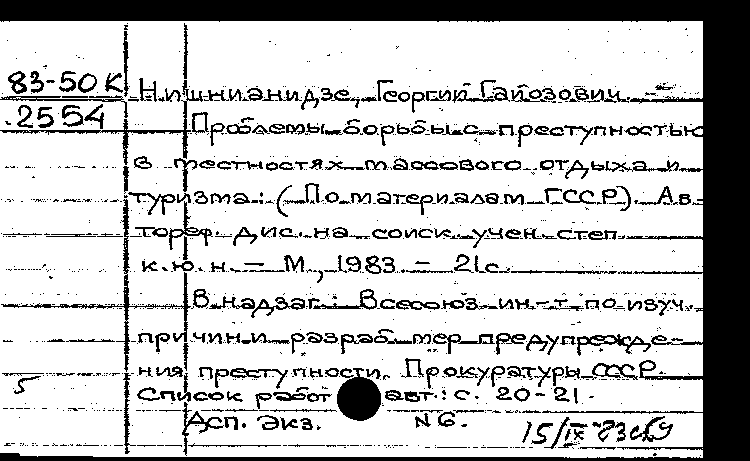 83-50 К Нишнианидзе, Георгий Гайозович.
2554 Проблемы борьбы с преступностью
в местностях массового отдыха и
туризма: (По материалам ГССР). Ав-
тореф. дис. на соиск. учен. степ.
к.ю.н. — М., 1983. — 21с.
В надзаг.: Всесоюз. ин-т по изуч.
причин и разраб. мер предупрежде-
ния преступности. Прокуратуры СССР.
5 Список работ авт.: с. 20-21.
Асп. экз. N6.
15/IX-83